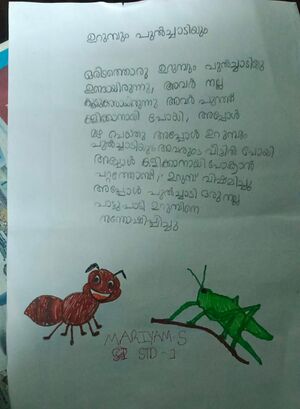 ഉറുമ്പും പുൽച്ചാടിയും
ഒരിടത്തൊരു ഉറുമ്പും പുൽച്ചാടിയു
ഉണ്ടായിരുന്നു, അവർ നല്ല
കൂട്ടുകാരായിരുന്നു അവർ പുറത്ത്
കളിക്കാനായി പോയി, അപ്പോൾ
മഴ പെയ്തു അപ്പോൾ ഉറുമ്പും
പുൽച്ചാടിയും അവരുടെ വീട്ടിൽ പോയി
അപ്പോൾ കളിക്കാനായി പോകാൻ
പറ്റത്തോണ്ട്, ഉറുമ്പ് വിഷമിച്ചു
അപ്പോൾ പുൽച്ചാടി ഒരു നല്ല
പാട്ടു പാടി ഉറുമ്പിനെ
സന്തോഷിപ്പിച്ചു
MARIYAM.S
STD - 1